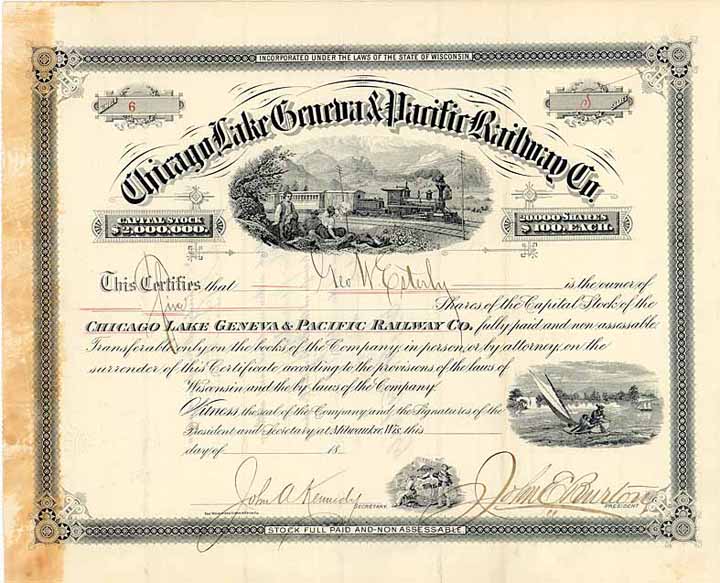 INCORPORATED UNDER THE LAWS OF THE STATE OF WISCONSIN.
6 5
Chicago Lake Geneva & Pacific Railway Co.
CAPITAL STOCK
$2,000,000.
20,000 SHARES
$100. EACH.
This Certifies that Geo W Esterly is the owner of
Five Shares of the Capital Stock of the
CHICAGO LAKE GENEVA & PACIFIC RAILWAY CO. fully paid and non-assessable
Transferable only on the books of the Company, in person, or by attorney, on the
surrender of this Certificate according to the provisions of the laws of
Wisconsin and the by-laws of the Company.
Witness, the seal of the Company and the Signatures of the
President and Secretary, at Milwaukee, Wis. this
day of 18
John A Kennedy SECRETARY.
John E Burton PRESIDENT
STOCK FULL PAID AND NON ASSESSABLE